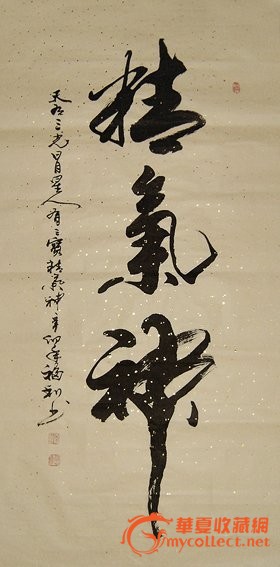 精氣神
天有三光日月星人有三寶精氣神辛卯年福利书
華夏收藏網
mycollect.net